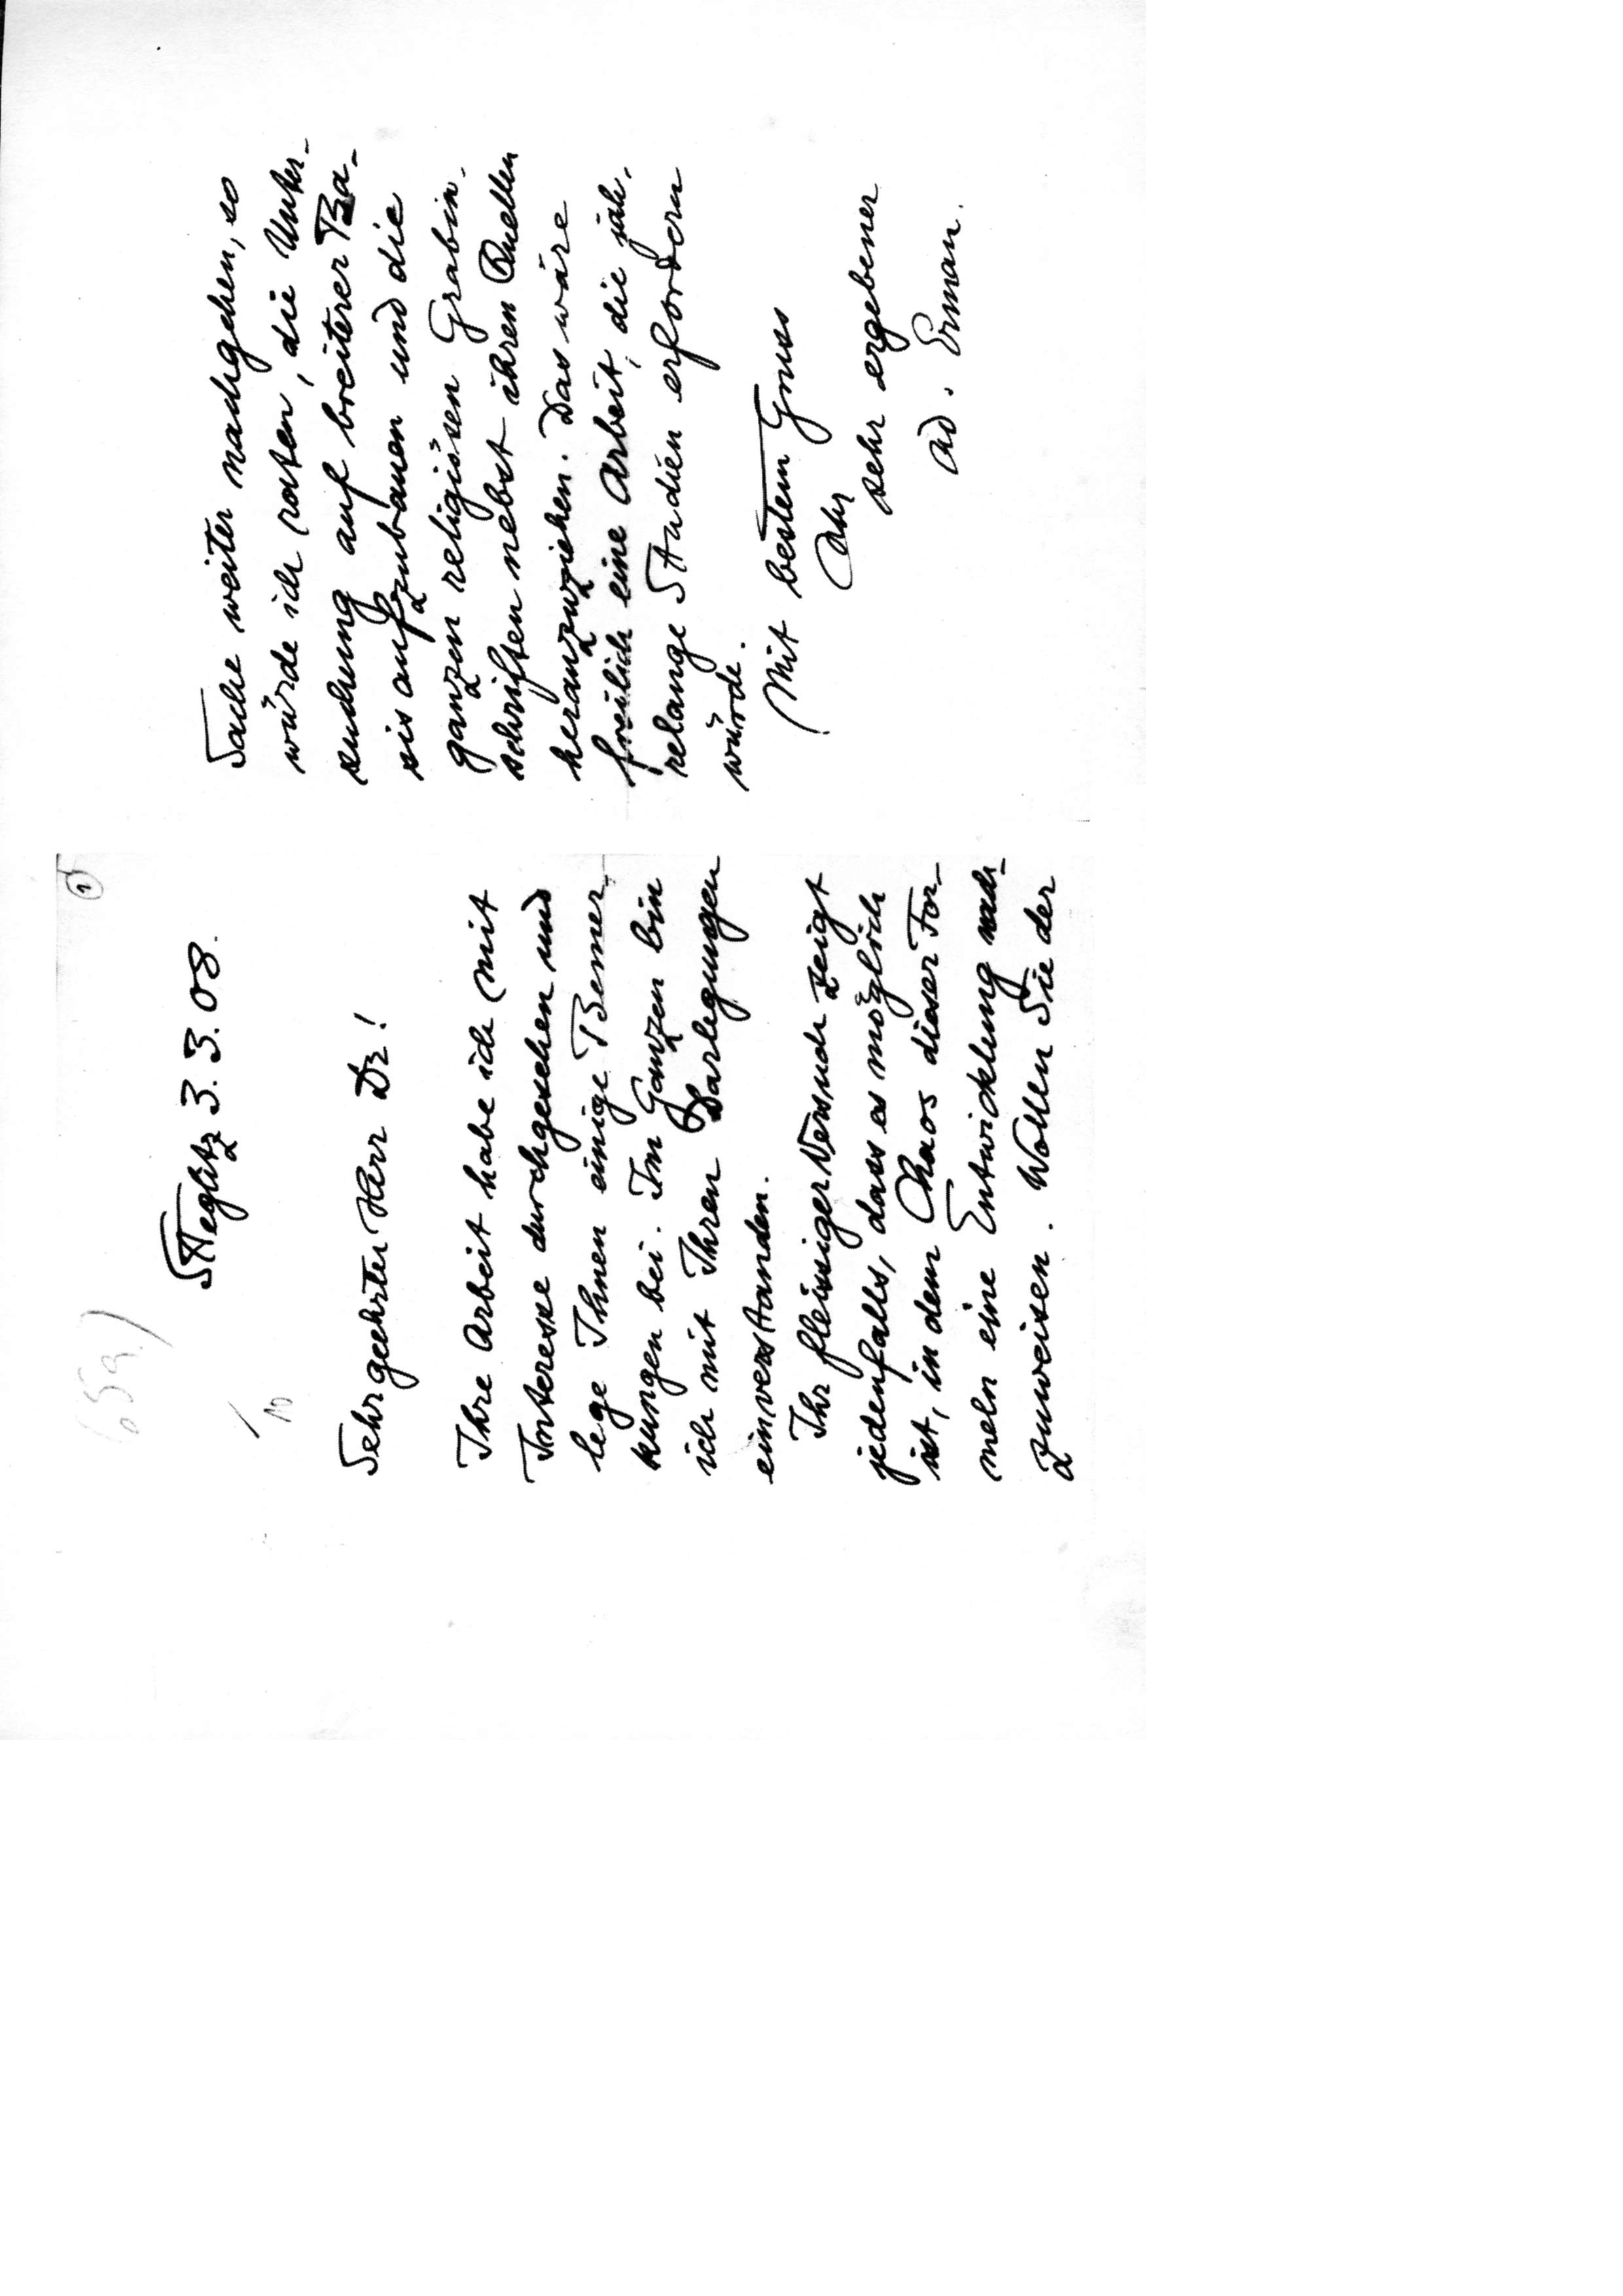 (1)
65a)
Steglitz 3.3.08.
Sehr geehrter Herr Dr!
Ihre Arbeit habe ich mit
Interesse durchgesehen und
lege Ihnen einige Bemer-
kungen bei. Im Ganzen bin
ich mit Ihren Darlegungen
einverstanden.
Ihr fleissiger Versuch zeigt
jedenfalls, dass es möglich
ist, in dem Chaos dieser For-
meln eine Entwicklung nach-
zuweisen. Wollen Sie der
Sache weiter nachgehen, so
würde ich raten, die Unter-
suchung auf breiterer Ba-
sis aufzubauen und die
ganzen religiösen Grabin-
schriften nebst ihren Quellen
heranzuziehen. Das wäre
freilich eine Arbeit, die jah-
relange Studien erfordern
würde.
Mit bestem Gruss
Ihr
sehr ergebener
Ad. Erman.